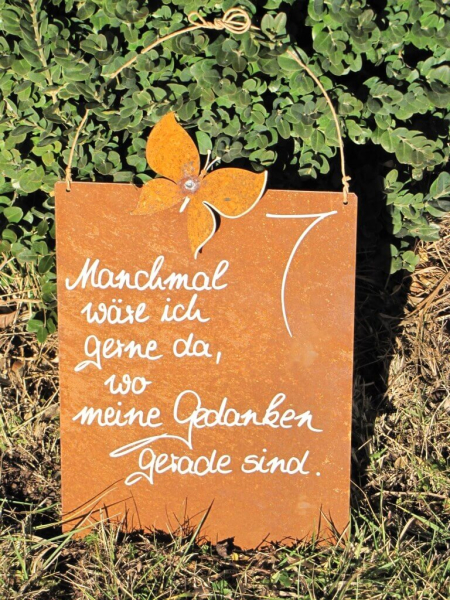 Manchmal
wäre ich
gerne da,
wo
meine Gedanken
gerade sind.